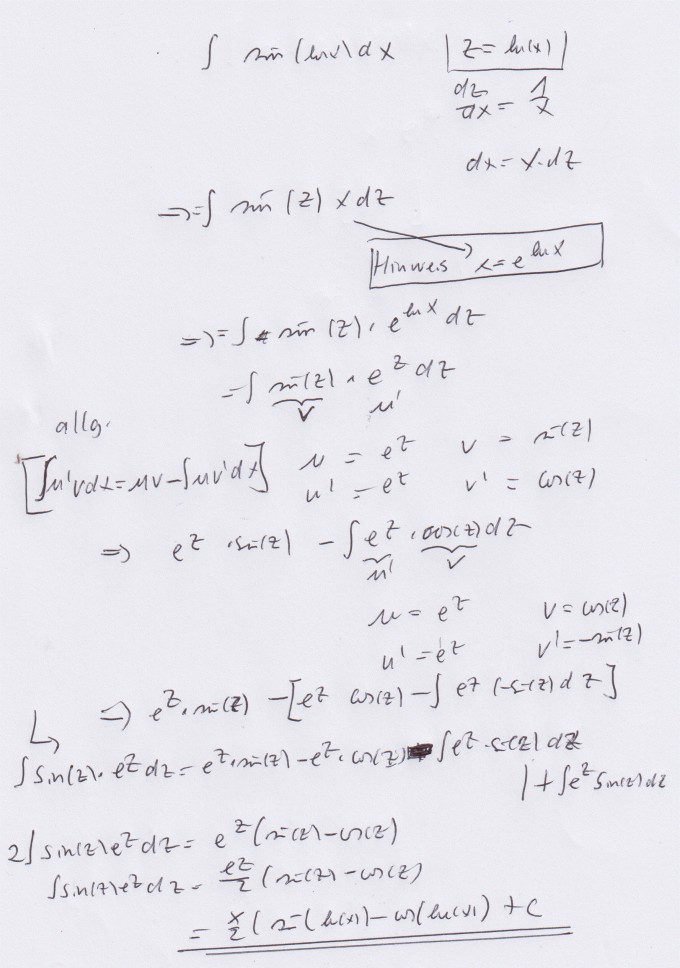 ∫ sin(lnx)dx |z=ln(x)|
dz/dx = 1/x
dx = x·dz
=>=∫ sin(z) x dz
Hinweis x=e^{ln x}
=>=∫ sin(z)·e^{ln x} dz
=∫ sin(z) · e^z dz
v u'
allg.
[∫u'vdx=uv-∫uv'dx] u = e^z v = sin(z)
u' = e^z v' = cos(z)
=> e^z ·sin(z) - ∫e^z ·cos(z)dz
u' v
u = e^z v = cos(z)
u' = e^z v'=-sin(z)
↳ => e^z·sin(z) -[e^z cos(z) -∫ e^z (-sin(z) dz]
∫sin(z)·e^z dz = e^z·sin(z) - e^z·cos(z) - ∫e^z·sin(z) dz
|+∫e^z sin(z)dz
2∫sin(z)e^z dz = e^z(sin(z)-cos(z)
∫sin(z)e^z dz = e^z/2 (sin(z) - cos(z)
= x/2 (sin(ln(x))-cos(ln(x)) +c